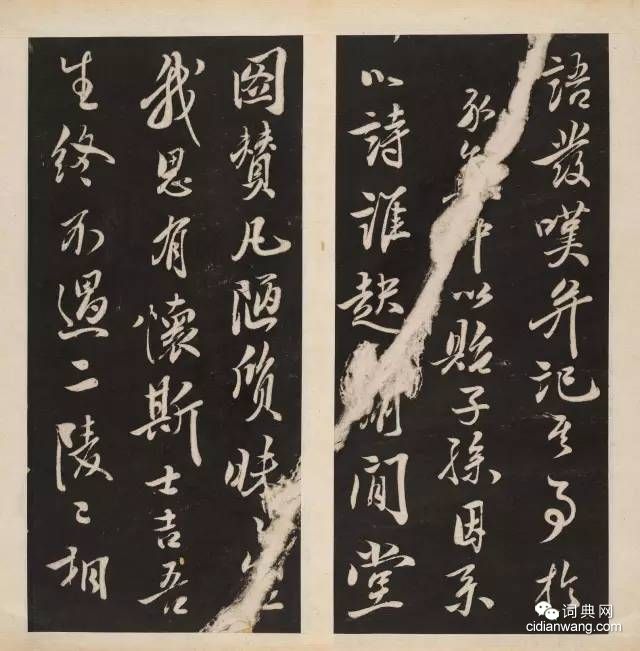 語發嘆并記其事於
中以貽子孫因系
以詩誰閒堂
圖贊凡陋質昧
我思有懷斯士吉吾
生終不遇二陵二相
词典网
cidianwang.com